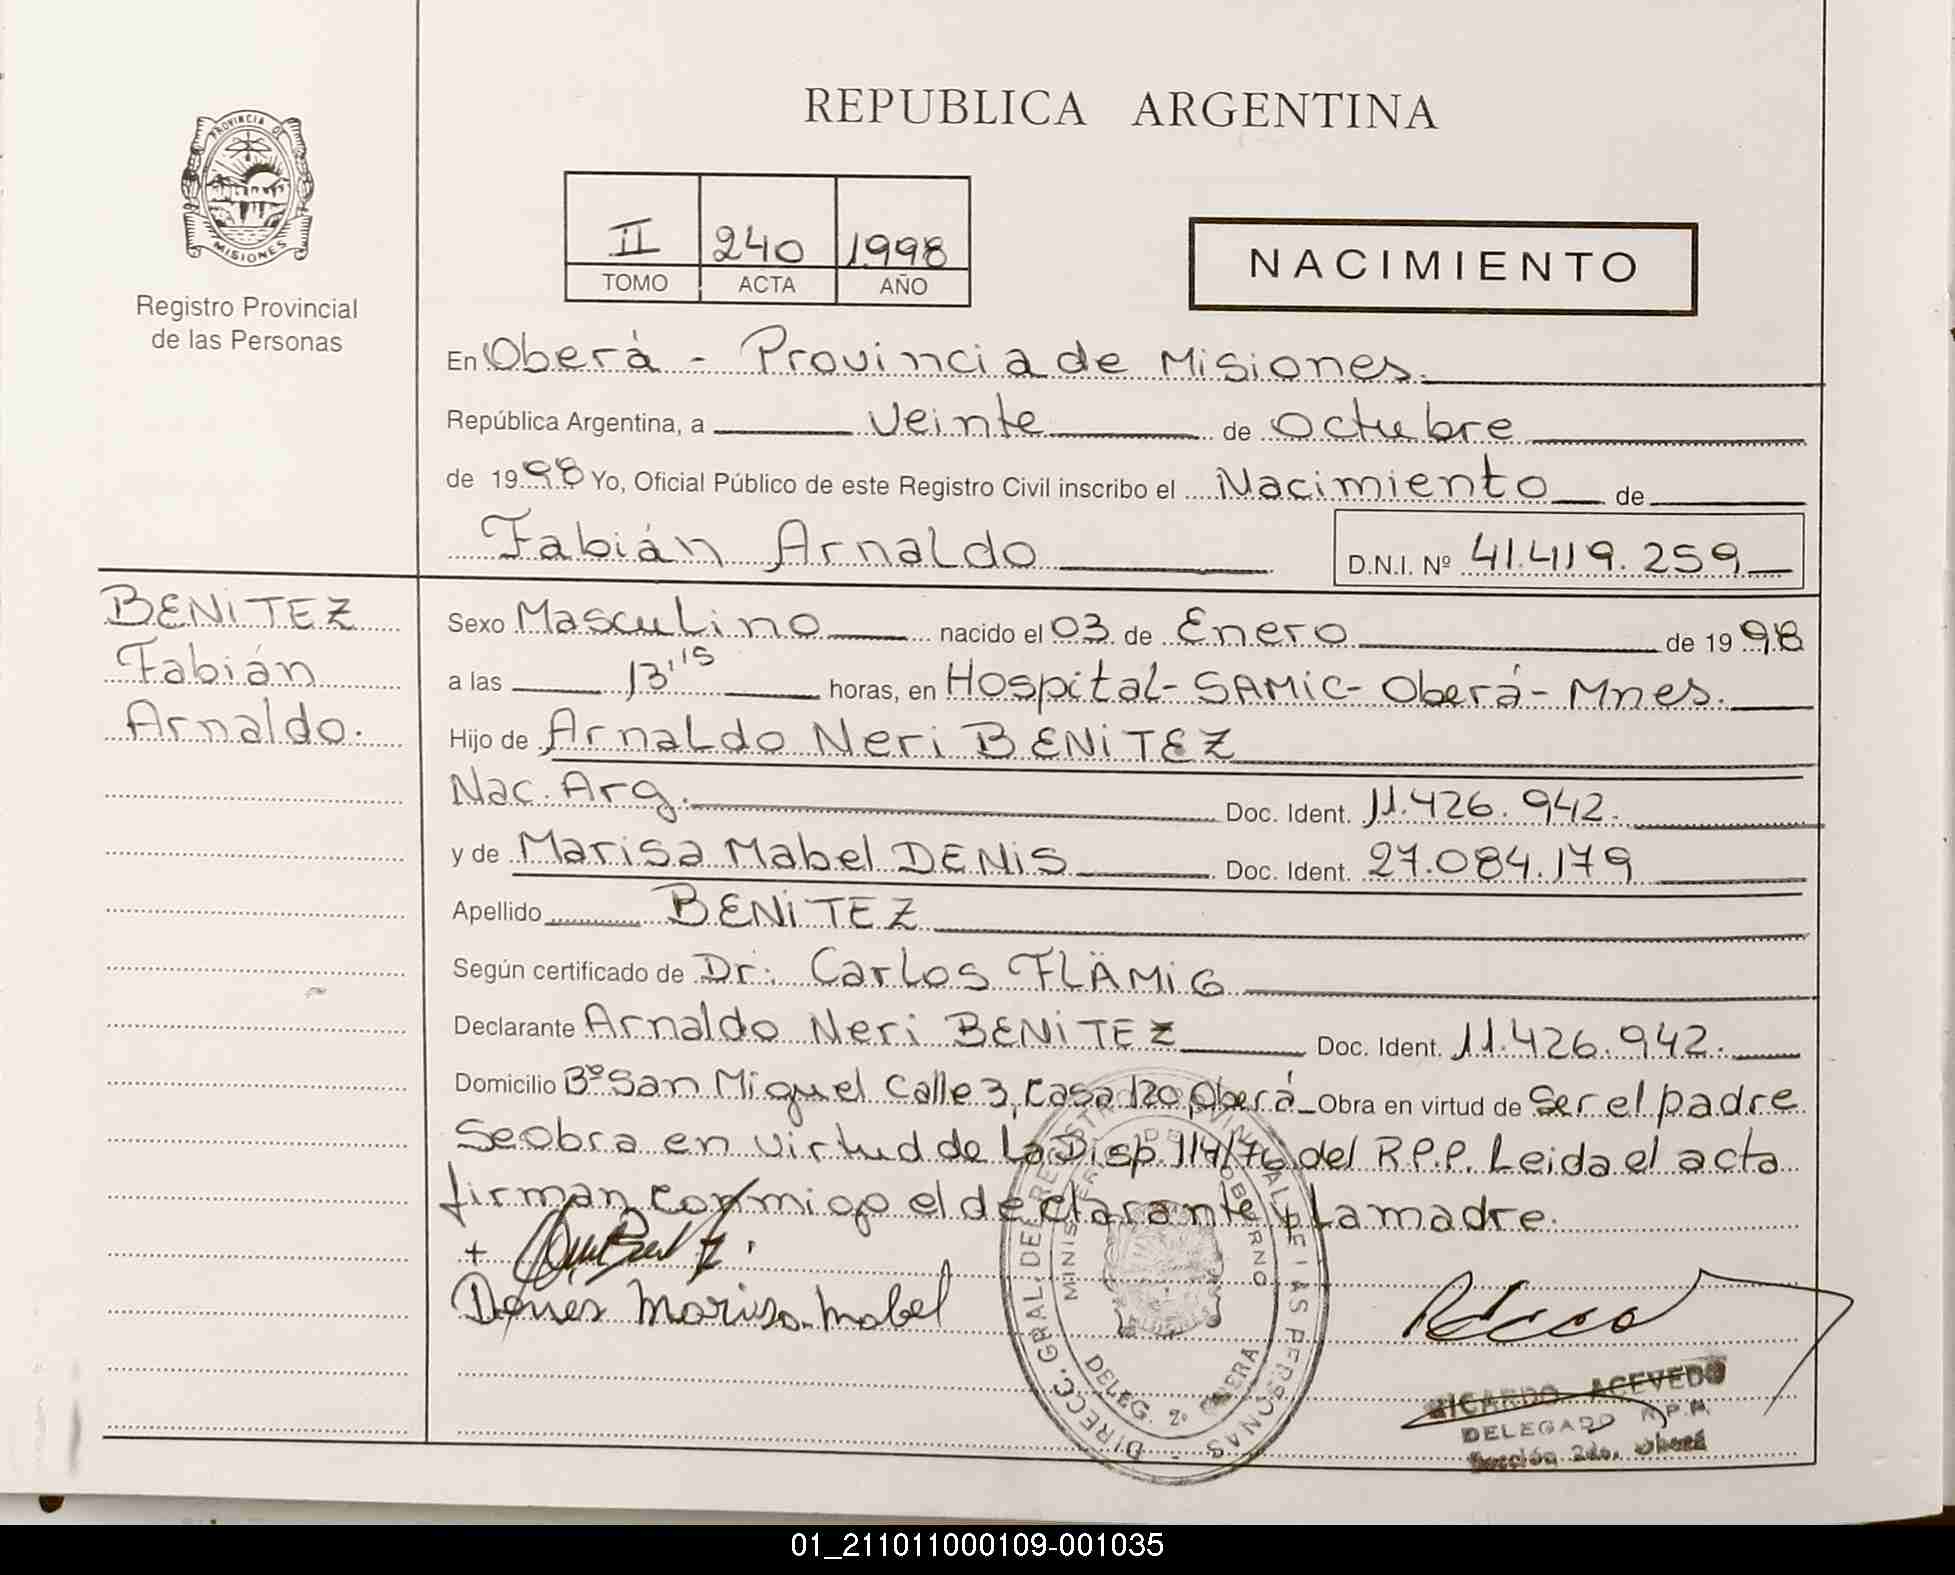 REPUBLICA ARGENTINA
PROVINCIA DE
MISIONES
Registro Provincial
de las Personas
II 240 1998
TOMO ACTA AÑO
NACIMIENTO
En Oberá - Provincia de Misiones.
República Argentina, a veinte de Octubre
de 1998 Yo, Oficial Público de este Registro Civil inscribo el Nacimiento de
Fabián Arnaldo D.N.I. Nº 41.419.259
BENITEZ
Fabián
Arnaldo.
Sexo Masculino nacido el 03 de Enero de 1998
a las 13'15 horas, en Hospital-SAMIC-Oberá-Mnes.
Hijo de Arnaldo Neri BENITEZ
Nac. Arg. Doc. Ident. 11.426.942.
y de Marisa Mabel DENIS Doc. Ident. 27.084.179
Apellido BENITEZ
Según certificado de Dr: Carlos FLÄMIG
Declarante Arnaldo Neri BENITEZ Doc. Ident. 11.426.942.
Domicilio Bº San Miguel Calle 3, Casa 120, Oberá Obra en virtud de Ser el padre
Se obra en virtud de la Disp. 114/76 del R.P.P. Leida el acta
firman conmigo el declarante y la madre.
+
Marisa Mabel
DIRECC. GRAL. DEL REGISTRO PROVINCIAL DE LAS PERSONAS
GOBIERNO
DELEG. 2º OBERA
RICARDO ACEVEDO
DELEGADO
Sección 2da. Oberá
01_211011000109-001035